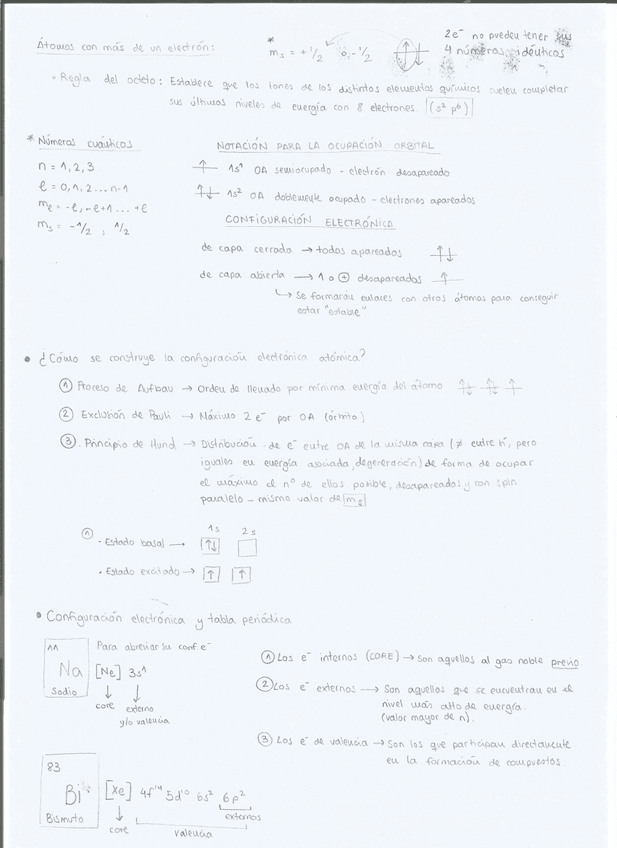 Átomos con más de un electrón:
* ms = +1/2 o -1/2
2e⁻ no pueden tener sus
4 números idénticos
* Regla del octeto: Establece que los iones de los distintos elementos químicos suelen completar
sus últimos niveles de energía con 8 electrones. (s² p⁶)
* Números cuánticos
n = 1, 2, 3
ℓ = 0, 1, 2 ... n-1
mℓ = -ℓ, -ℓ+1 ... +ℓ
ms = -1/2, 1/2
NOTACIÓN PARA LA OCUPACIÓN ORBITAL
↑ 1s¹ OA semiocupado - electrón desapareado
↑↓ 1s² OA doblemente ocupado - electrones apareados
CONFIGURACIÓN ELECTRÓNICA
de capa cerrada → todos apareados ↑↓
de capa abierta → 1 o ⊕ desapareados ↑
↳ Se formarán enlaces con otros átomos para conseguir
estar "estable"
• ¿Cómo se construye la configuración electrónica atómica?
① Proceso de Aufbau → Orden de llenado por mínima energía del átomo ↑↓ ↑↓ ↑
② Exclusión de Pauli → Máximo 2 e⁻ por OA (órbita)
③ Principio de Hund → Distribución de e⁻ entre OA de la misma capa (≠ entre sí, pero
iguales en energía asociada, degeneración) de forma de ocupar
el máximo el nº de ellos posible, desapareados y con spin
paralelo - mismo valor de
① 1s 2s
- Estado basal → ↑↓
• Estado excitado → ↑ ↑
• Configuración electrónica y tabla periódica
11
Na
Sodio
Para abreviar su conf. e⁻
[Ne] 3s¹
core externo
y/o valencia
① Los e⁻ internos (CORE) → Son aquellos al gas noble previo.
② Los e⁻ externos → Son aquellos que se encuentran en el
nivel más alto de energía.
(valor mayor de n).
③ Los e⁻ de valencia → Son los que participan directamente
en la formación de compuestos.
83
Bi
Bismuto
[Xe] 4f¹⁴ 5d¹⁰ 6s² 6p²
externos
core
valencia